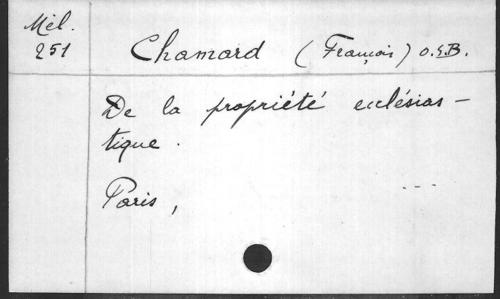 Mél.
251
Chamard (François) O.S.B.
De la propriété ecclésias-
tique.
Paris, ...